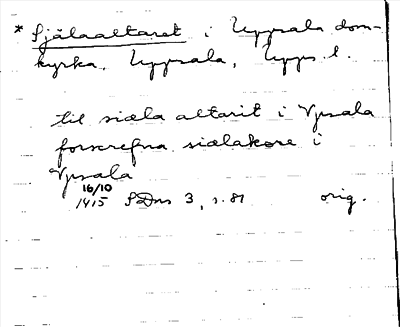 * Själaaltaret i Uppsala dom-
kyrka, Uppsala, Upps. l.
til siæla altarit i Vpsala
forscrefna siælakore i
Vpsala
16/10
1415 SDns 3, s. 81 orig.